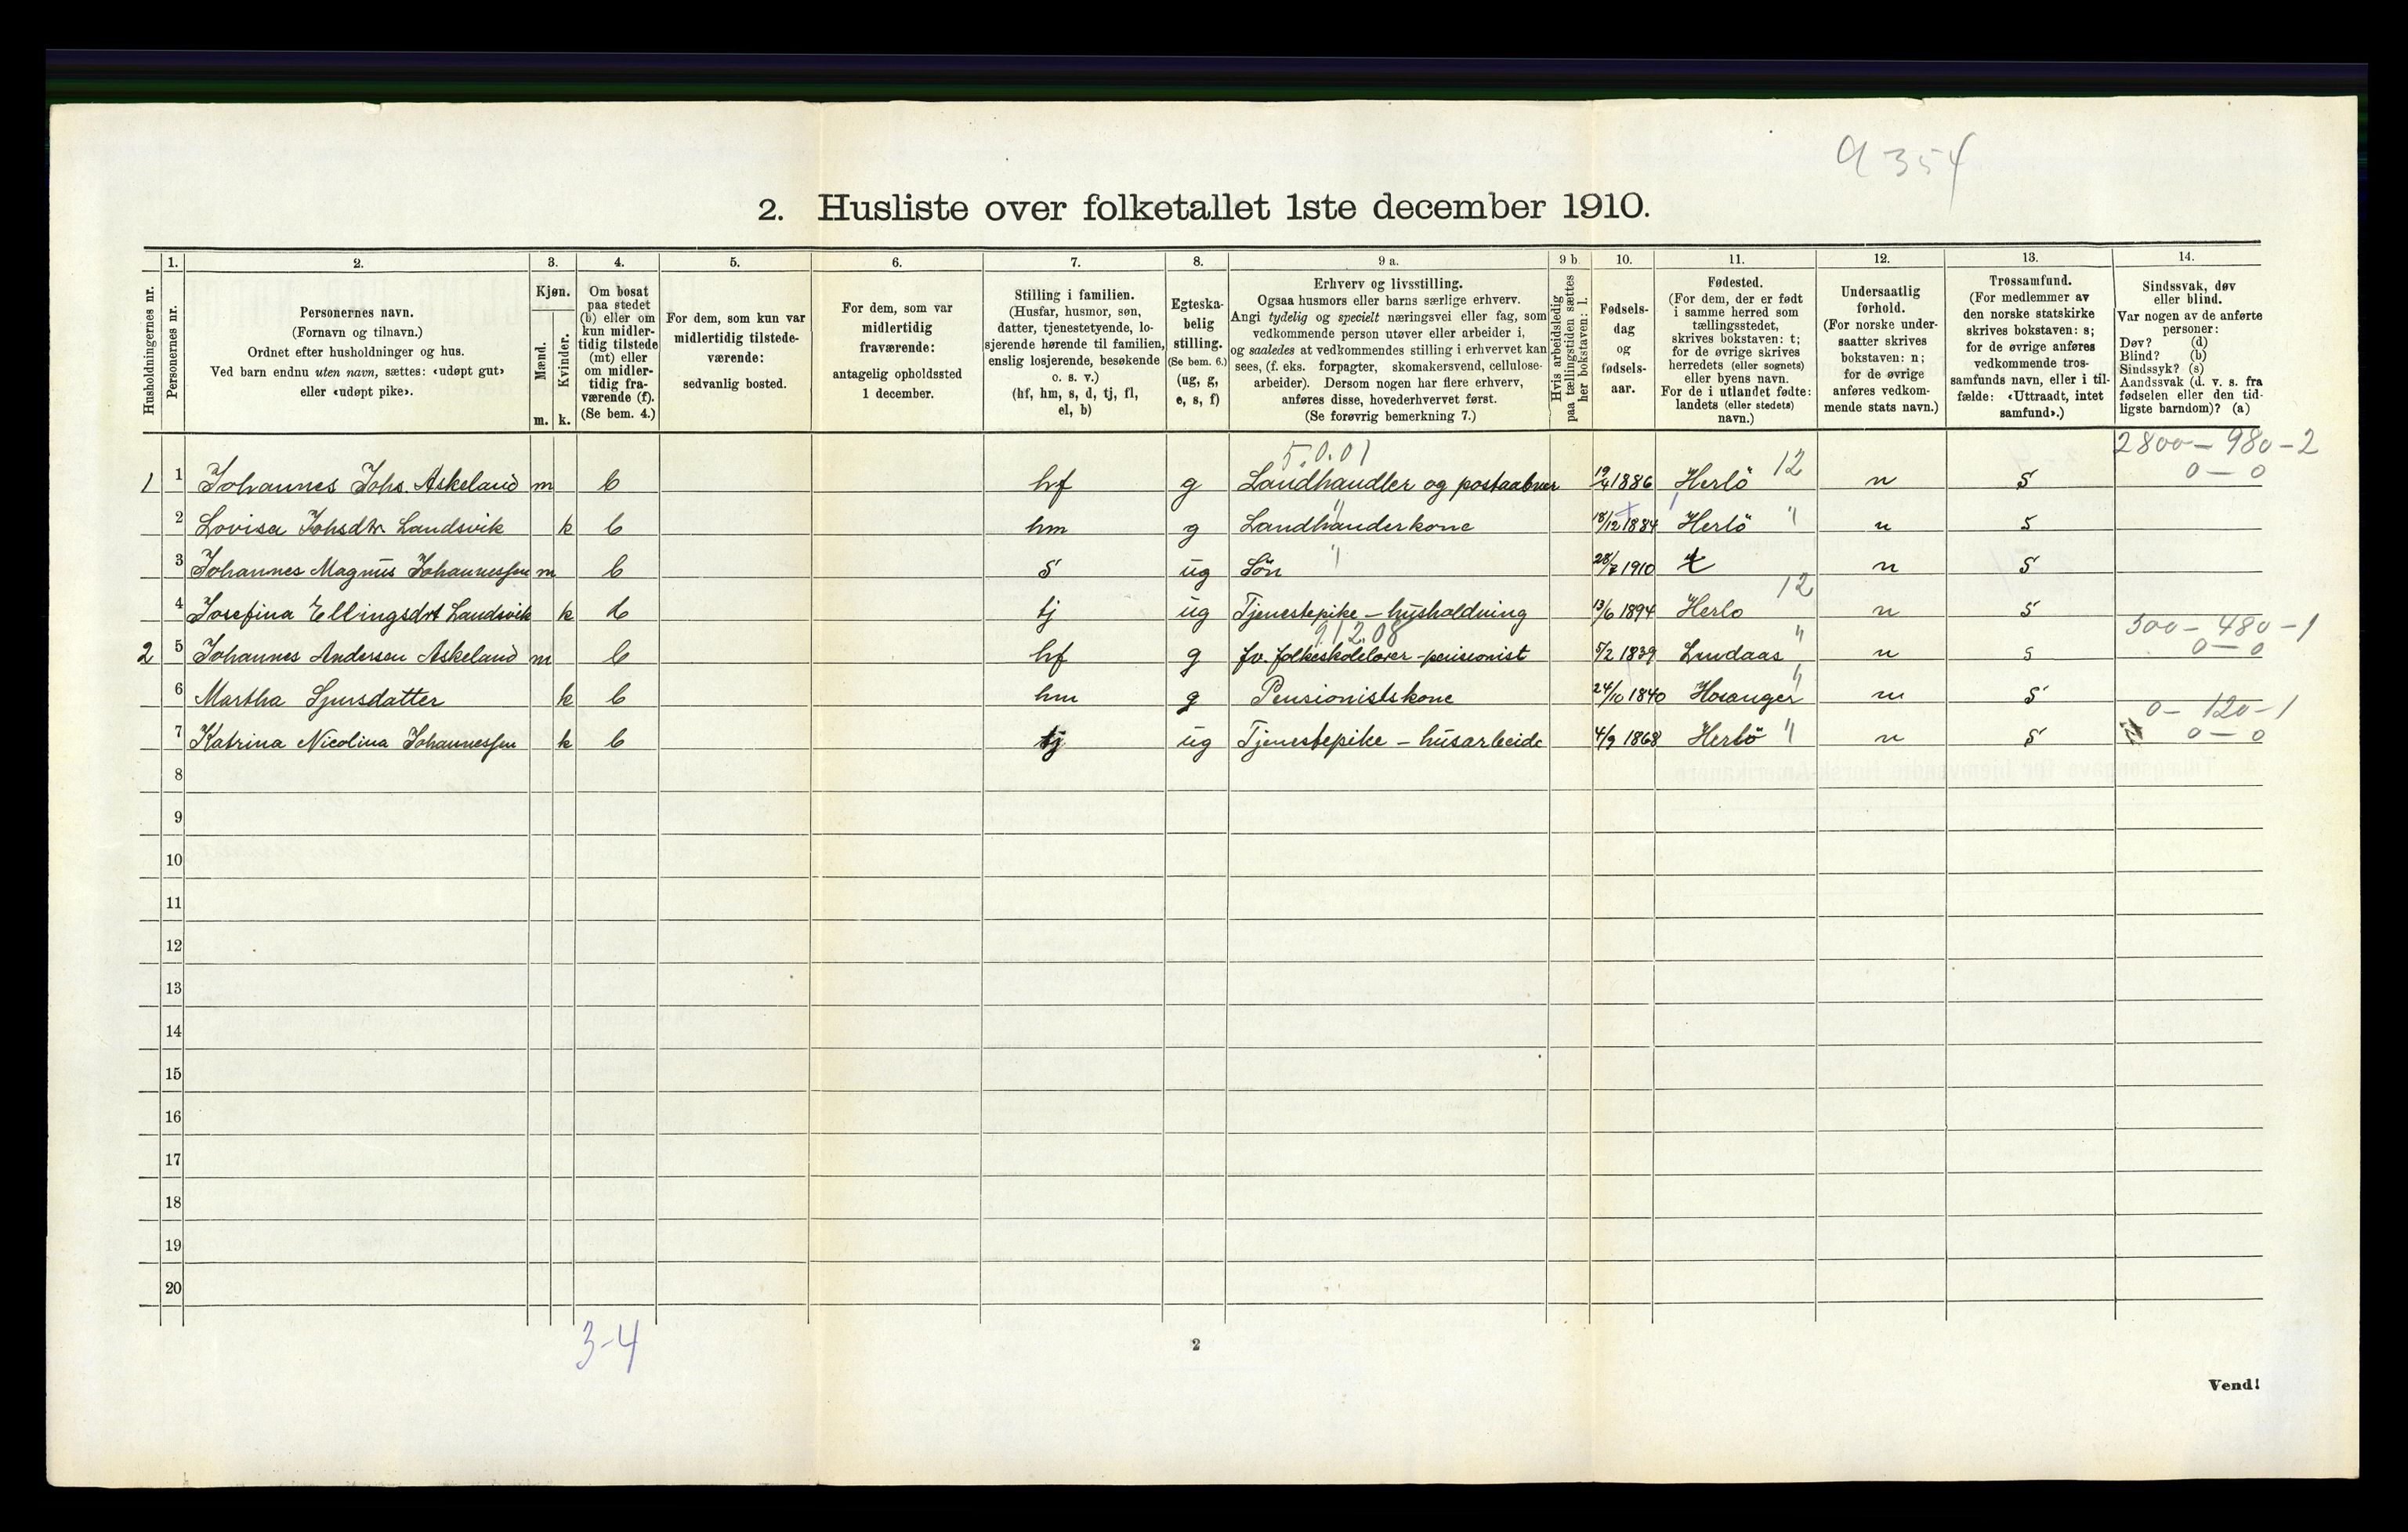 9354
2. Husliste over folketallet 1ste december 1910.
Husholdningernes nr.
1.
Personernes nr.
2.
Personernes navn.
(Fornavn og tilnavn.)
Ordnet efter husholdninger og hus.
Ved barn endnu uten navn, sættes: «udøpt gut»
eller «udøpt pike».
3.
Kjøn.
Mænd.
m.
Kvinder.
k.
4.
Om bosat
paa stedet
(b) eller om
kun midler-
tidig tilstede
(mt) eller
om midler-
tidig fra-
værende (f).
(Se bem. 4.)
5.
For dem, som kun var
midlertidig tilstede-
værende:
sedvanlig bosted.
6.
For dem, som var
midlertidig
fraværende:
antagelig opholdssted
1 december.
7.
Stilling i familien.
(Husfar, husmor, søn,
datter, tjenestetyende, lo-
sjerende hørende til familien,
enslig losjerende, besøkende
o. s. v.)
(hf, hm, s, d, tj, fl,
el, b)
8.
Egteska-
belig
stilling.
(Se bem. 6.)
(ug, g,
e, s, f)
9 a.
Erhverv og livsstilling.
Ogsaa husmors eller barns særlige erhverv.
Angi tydelig og specielt næringsvei eller fag, som
vedkommende person utøver eller arbeider i,
og saaledes at vedkommendes stilling i erhvervet kan
sees, (f. eks. forpagter, skomakersvend, cellulose-
arbeider). Dersom nogen har flere erhverv,
anføres disse, hovederhvervet først.
(Se forøvrig bemerkning 7.)
9 b.
Hvis arbeidsledig
paa tællingstiden sættes
her bokstaven: l.
10.
Fødsels-
dag
og
fødsels-
aar.
11.
Fødested.
(For dem, der er født
i samme herred som
tællingsstedet,
skrives bokstaven: t;
for de øvrige skrives
herredets (eller sognets)
eller byens navn.
For de i utlandet fødte:
landets (eller stedets)
navn.)
12.
Undersaatlig
forhold.
(For norske under-
saatter skrives
bokstaven: n;
for de øvrige
anføres vedkom-
mende stats navn.)
13.
Trossamfund.
(For medlemmer av
den norske statskirke
skrives bokstaven: s;
for de øvrige anføres
vedkommende tros-
samfunds navn, eller i til-
fælde: «Uttraadt, intet
samfund».)
14.
Sindssvak, døv
eller blind.
Var nogen av de anførte
personer:
Døv? (d)
Blind? (b)
Sindssyk? (s)
Aandssvak (d. v. s. fra
fødselen eller den tid-
ligste barndom)? (a)
5.0.01 2800 - 980 - 2
1 1 Johannes Johs. Askeland m b hf g Landhandler og postaabner 19/4 1886 Herlö 12 n s 0 - 0
2 Lovisa Johsdtr. Landsvik k b hm g Landhanderkone " 18/12 1884 Herlö " n s
3 Johannes Magnus Johannessen m b s ug Sön " 28/7 1910 t n s
4 Josefina Ellingsdtr Landsvik k b tj ug Tjenestepike - husholdning 13/6 1894 Herlo 12 n s
912.08 500 - 480 - 1
2 5 Johannes Andersen Askeland m b hf g fv. folkeskolelærer - pensionist 5/2 1839 Lindaas " n s 0 - 0
6 Martha Sjursdatter k b hm g Pensionistskone 24/10 1840 Hosanger " n s
0 - 120 - 1
7 Katrina Nicolina Johannessen k b tj ug Tjenestepike - husarbeide 4/9 1868 Herlö " n s 0 - 0
8
9
10
11
12
13
14
15
16
17
18
19
20
3-4
2
Vend!